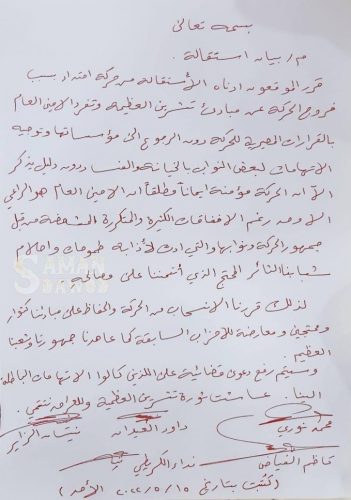 بسمه تعالى
م/ بيان استقالة .
قرر الموقعون ادناه الأستقالة من حركة امتداد بسبب
خروج الحركة عن مبادئ تشرين العظيمة وتفرد الامين العام
بالقرارات المصيرية للحركة دون الرجوع الى مؤسساتها وتوجيه
الاتهامات لبعض النواب بالخيانة والفساد دون دليل يذكر
الا ان الحركة مؤمنة ايماناً مطلقاً ان الامين العام هو الراعي
الاوحد رغم الاخفاقات الكثيرة والمتكررة المشخصة من قبل
جمهور الحركة ونوابها والتي ادت لأذابة طموحات واحلام
شبابنا الثائر المحتج الذي أئتمننا على
لذلك قررنا الانسحاب من الحركة والحفاظ على مبادئنا كثوار
ومحتجين ومعارضة للاحزاب السابقة كما عاهدنا جمهورنا وشعبنا
العظيم .
وسيتم رفع دعوى قضائية على الذين كالوا الاتهامات الباطلة
الينا . عاشت ثورة تشرين العظيمة وللعراق ننتمي .
محمد نوري داود العيدان نيسان الزاير
كاظم الفياض نداء الكريطي
(كتبت بتاريخ ٢٠٢٢/٥/١٥ الأحد)
SAMAN
DAWOD